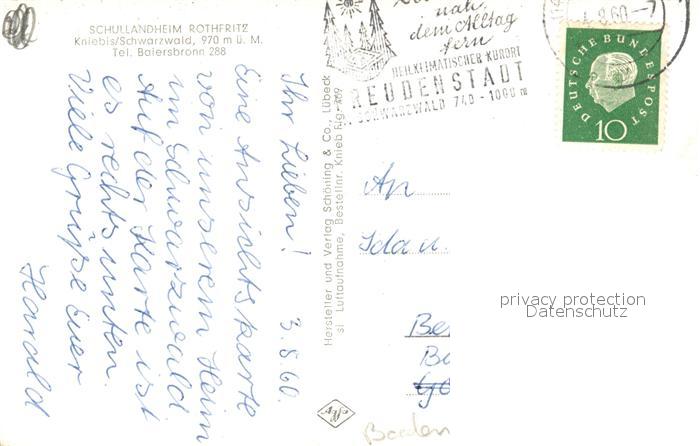 SCHULLANDHEIM ROTHFRITZ
Kniebis/Schwarzwald, 970 m ü. M.
Tel. Baiersbronn 288
3.8.60.
Ihr Lieben!
Eine Ansichtskarte
von unserem Heim
im Schwarzwald
Auf der Karte ist
es rechts unten.
Viele Grüße Euer
Harald
Hersteller und Verlag Schöning & Co., Lübeck
si Luftaufnahme, Bestellnr. Knieb
nah
dem Alltag
fern
HEILKLIMATISCHER KURORT
REUDENSTADT
SCHWARZWALD 740 - 1000 m
4.8.60-7
DEUTSCHE BUNDESPOST
10
An
Ida u.
Be
Ba
Baden
Agfa
privacy protection
Datenschutz